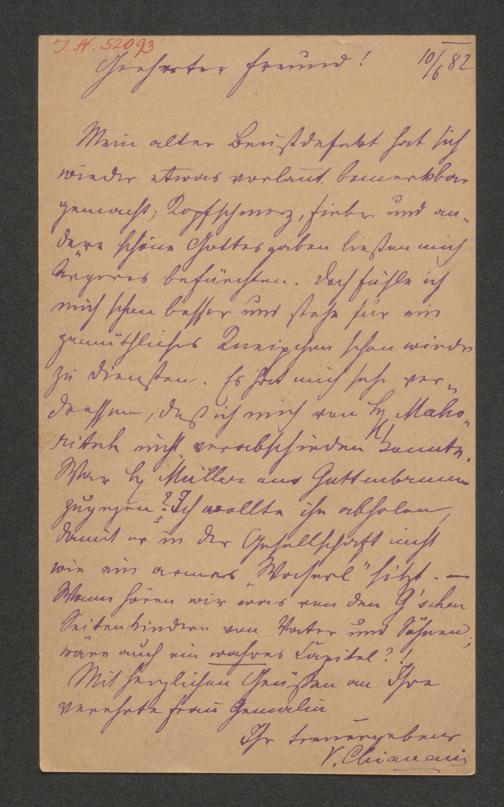 J. N. 52093
Geehrter Freund! 10/6 82
Mein alter Brustdefekt hat sich
wieder etwas vorlaut bemerkbar
gemacht; Kopfschmerz, Fieber und an-
dere schöne Gottesgaben ließen mich
Ärgeres befürchten. Doch fühle ich
mich schon besser und stehe für ein
gemüthliches Kneipchen schon wieder
zu Diensten. Es hat mich sehr ver-
drossen, daß ich mich von H Maho-
ritsch nicht verabschieden konnte.
War H Müller aus Guttenbrunn
zugegen? Ich wollte ihn abholen,
damit er in der Gesellschaft nicht
wie ein armes "Waserl" sitzt. —
Wann hören wir was von den G'schen
Seitenkindern von Vater und Söhnen,
wäre auch ein wahres Capitel?!
Mit herzlichen Grüßen an Ihre
verehrte Frau Gemalin
Ihr treuergebener
V. Chiavacci